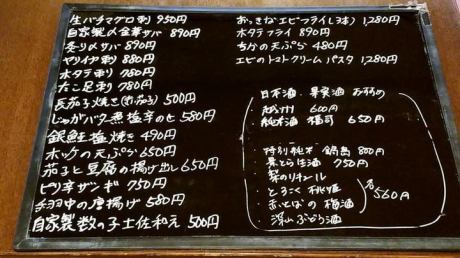 生バチマグロ刺 950円
自家製〆金華サバ 890円
炙り〆サバ 890円
ヤリイカ刺 880円
ホタテ刺し 780円
たこ足刺し 780円
長茄子焼き(代茄子) 500円
じゃがバター煮塩辛のせ 580円
銀鮭塩焼き 490円
ホッケの天ぷら 650円
茄子と豆腐の揚げ出し 650円
ピリ辛ザンギ 750円
手羽中の唐揚げ 580円
自家製数の子土佐和え 500円
おっきなエビフライ(3本) 1,280円
ホタテフライ 890円
ちかの天ぷら 480円
エビのトマトクリームパスタ 1,280円
日本酒・果実酒 おすすめ
600円
・純米酒 650円
・特別純米 鍋島 800円
750円
・梨のリキュール
・とろこく
・あらごしの梅酒
・深山ぶどう酒
各 560円